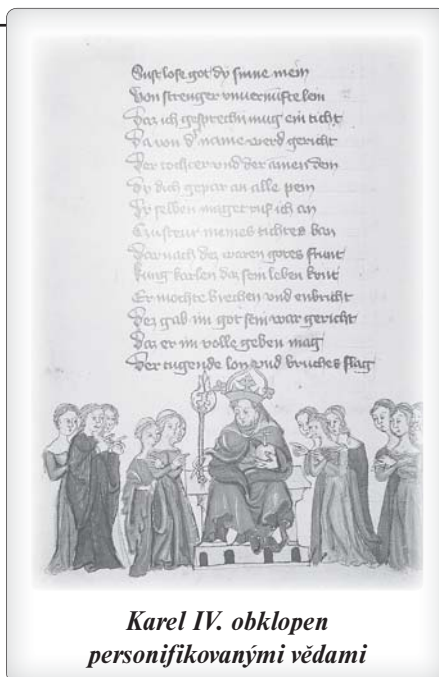 Sust lose got dy sinne mein
Von strenger vnuernufte lein
Daz ich gesprechn mug ein ticht
Da von name werd gericht
Der tochter vnd der amen dem
Dy dich gepar an alle pem
selben maget ruf ich an
meines tichtes ban
Dar nach dez waren gotes frunt
kung karlen daz sein leben
Er mochte brechen vnd enbricht
Dez gab im got sein war gericht
Daz er im volle geben mag
Der tugende lon vnd bruches slag
Karel IV. obklopen
personifikovanými vědami